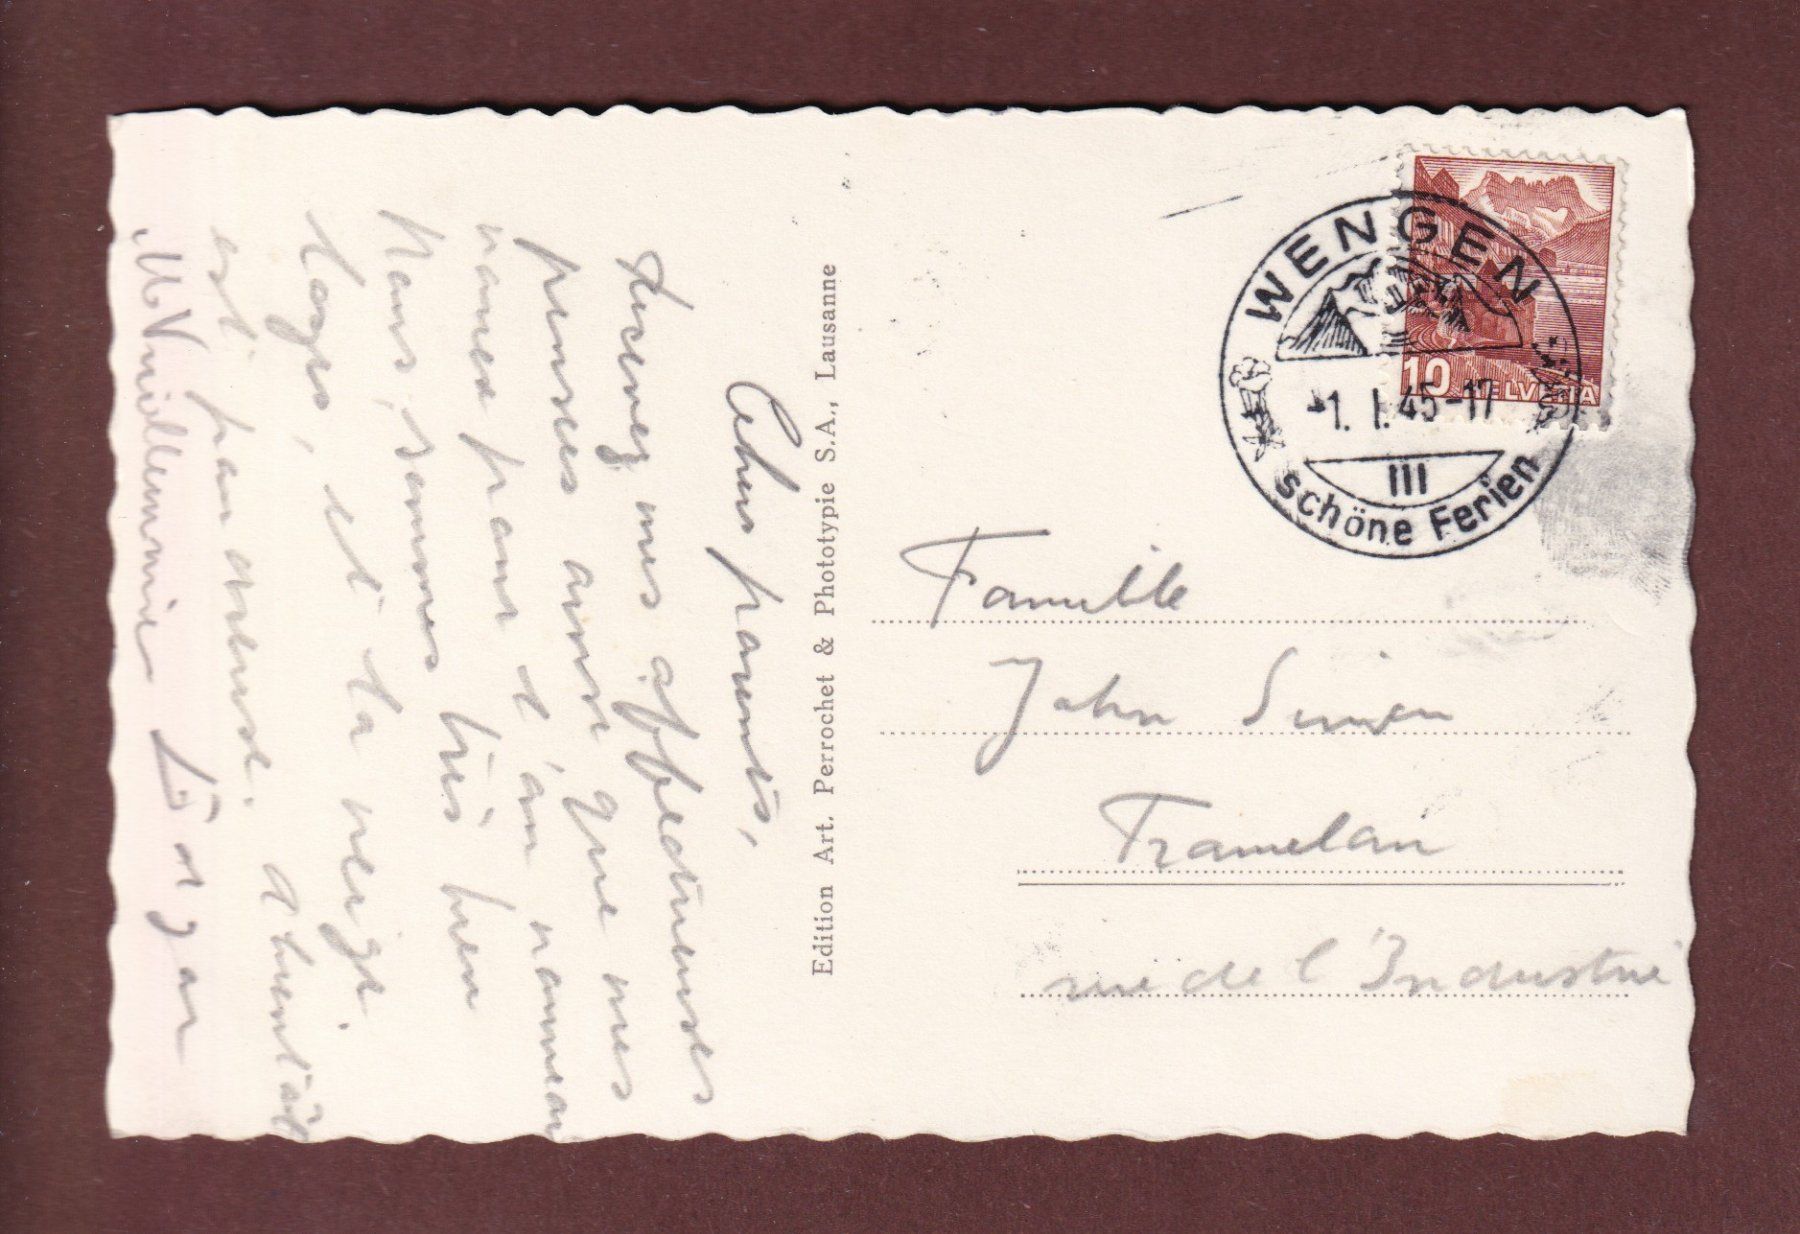 Chers parents,
Recevez mes affectueuses
pensées ainsi que mes
vœux pour l'an nouveau
Nous sommes très bien
logés, et la neige
est poudreuse. A bientôt
M. Vuilleumier
Edition Art. Perrochet & Phototypie S.A., Lausanne
WENGEN
-1. I. 45-17
III
schöne Ferien
10 HELVETIA
Famille
John
Tramelan
rue de l'Industrie